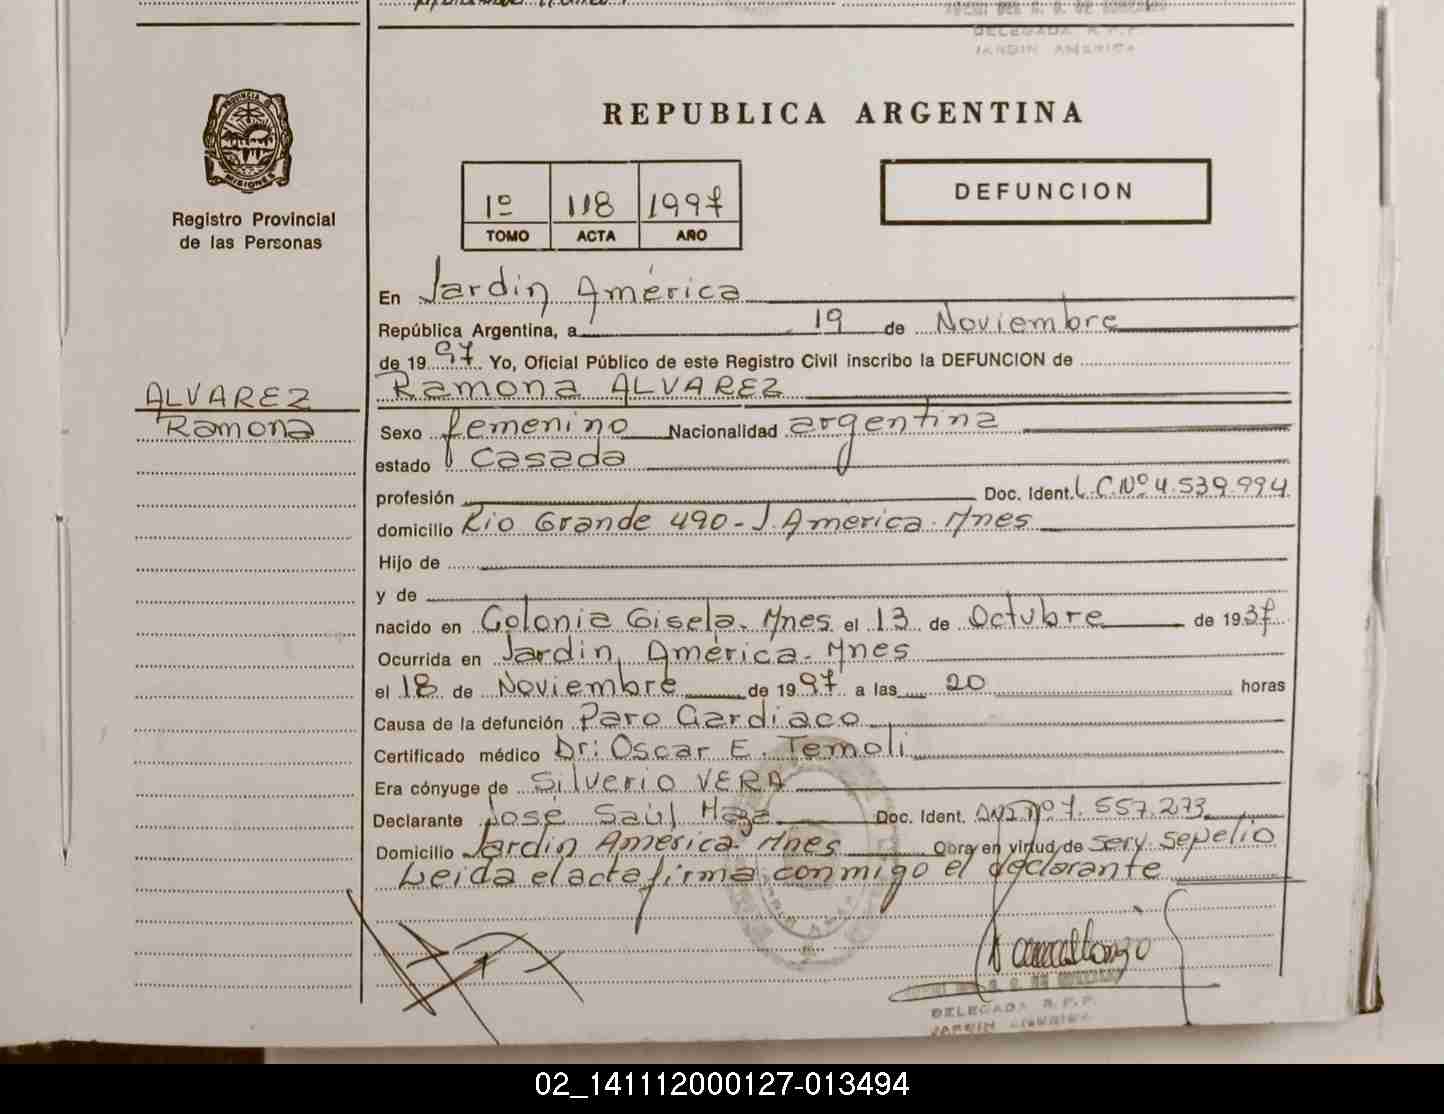 DELEGADA R.P.P.
JARDIN AMERICA
PROVINCIA D
MISIONES
REPUBLICA ARGENTINA
Registro Provincial
de las Personas
1º 118 1997
TOMO ACTA AÑO
DEFUNCION
En Jardin América
República Argentina, a 19 de Noviembre
de 1997 Yo, Oficial Público de este Registro Civil inscribo la DEFUNCION de
ALVAREZ
Ramona
Ramona ALVAREZ
Sexo femenino Nacionalidad argentina
estado Casada
profesión Doc. Ident. L.C.Nº 4.539.994
domicilio Rio Grande 490-J.America-Mnes
Hijo de
y de
nacido en Colonia Gisela. Mnes el 13 de Octubre de 1937
Ocurrida en Jardin América-Mnes
el 18 de Noviembre de 1997 a las 20 horas
Causa de la defunción Paro Cardiaco
Certificado médico Dr: Oscar E. Temoli
Era cónyuge de Silverio VERA
Declarante José Saúl Doc. Ident. DNI nº 7.557.273
Domicilio Jardin America-Mnes Obra en virtud de serv. sepelio
Leida el acta firma conmigo el declarante
DELEGADA R.P.P.
JARDIN AMERICA
02_141112000127-013494